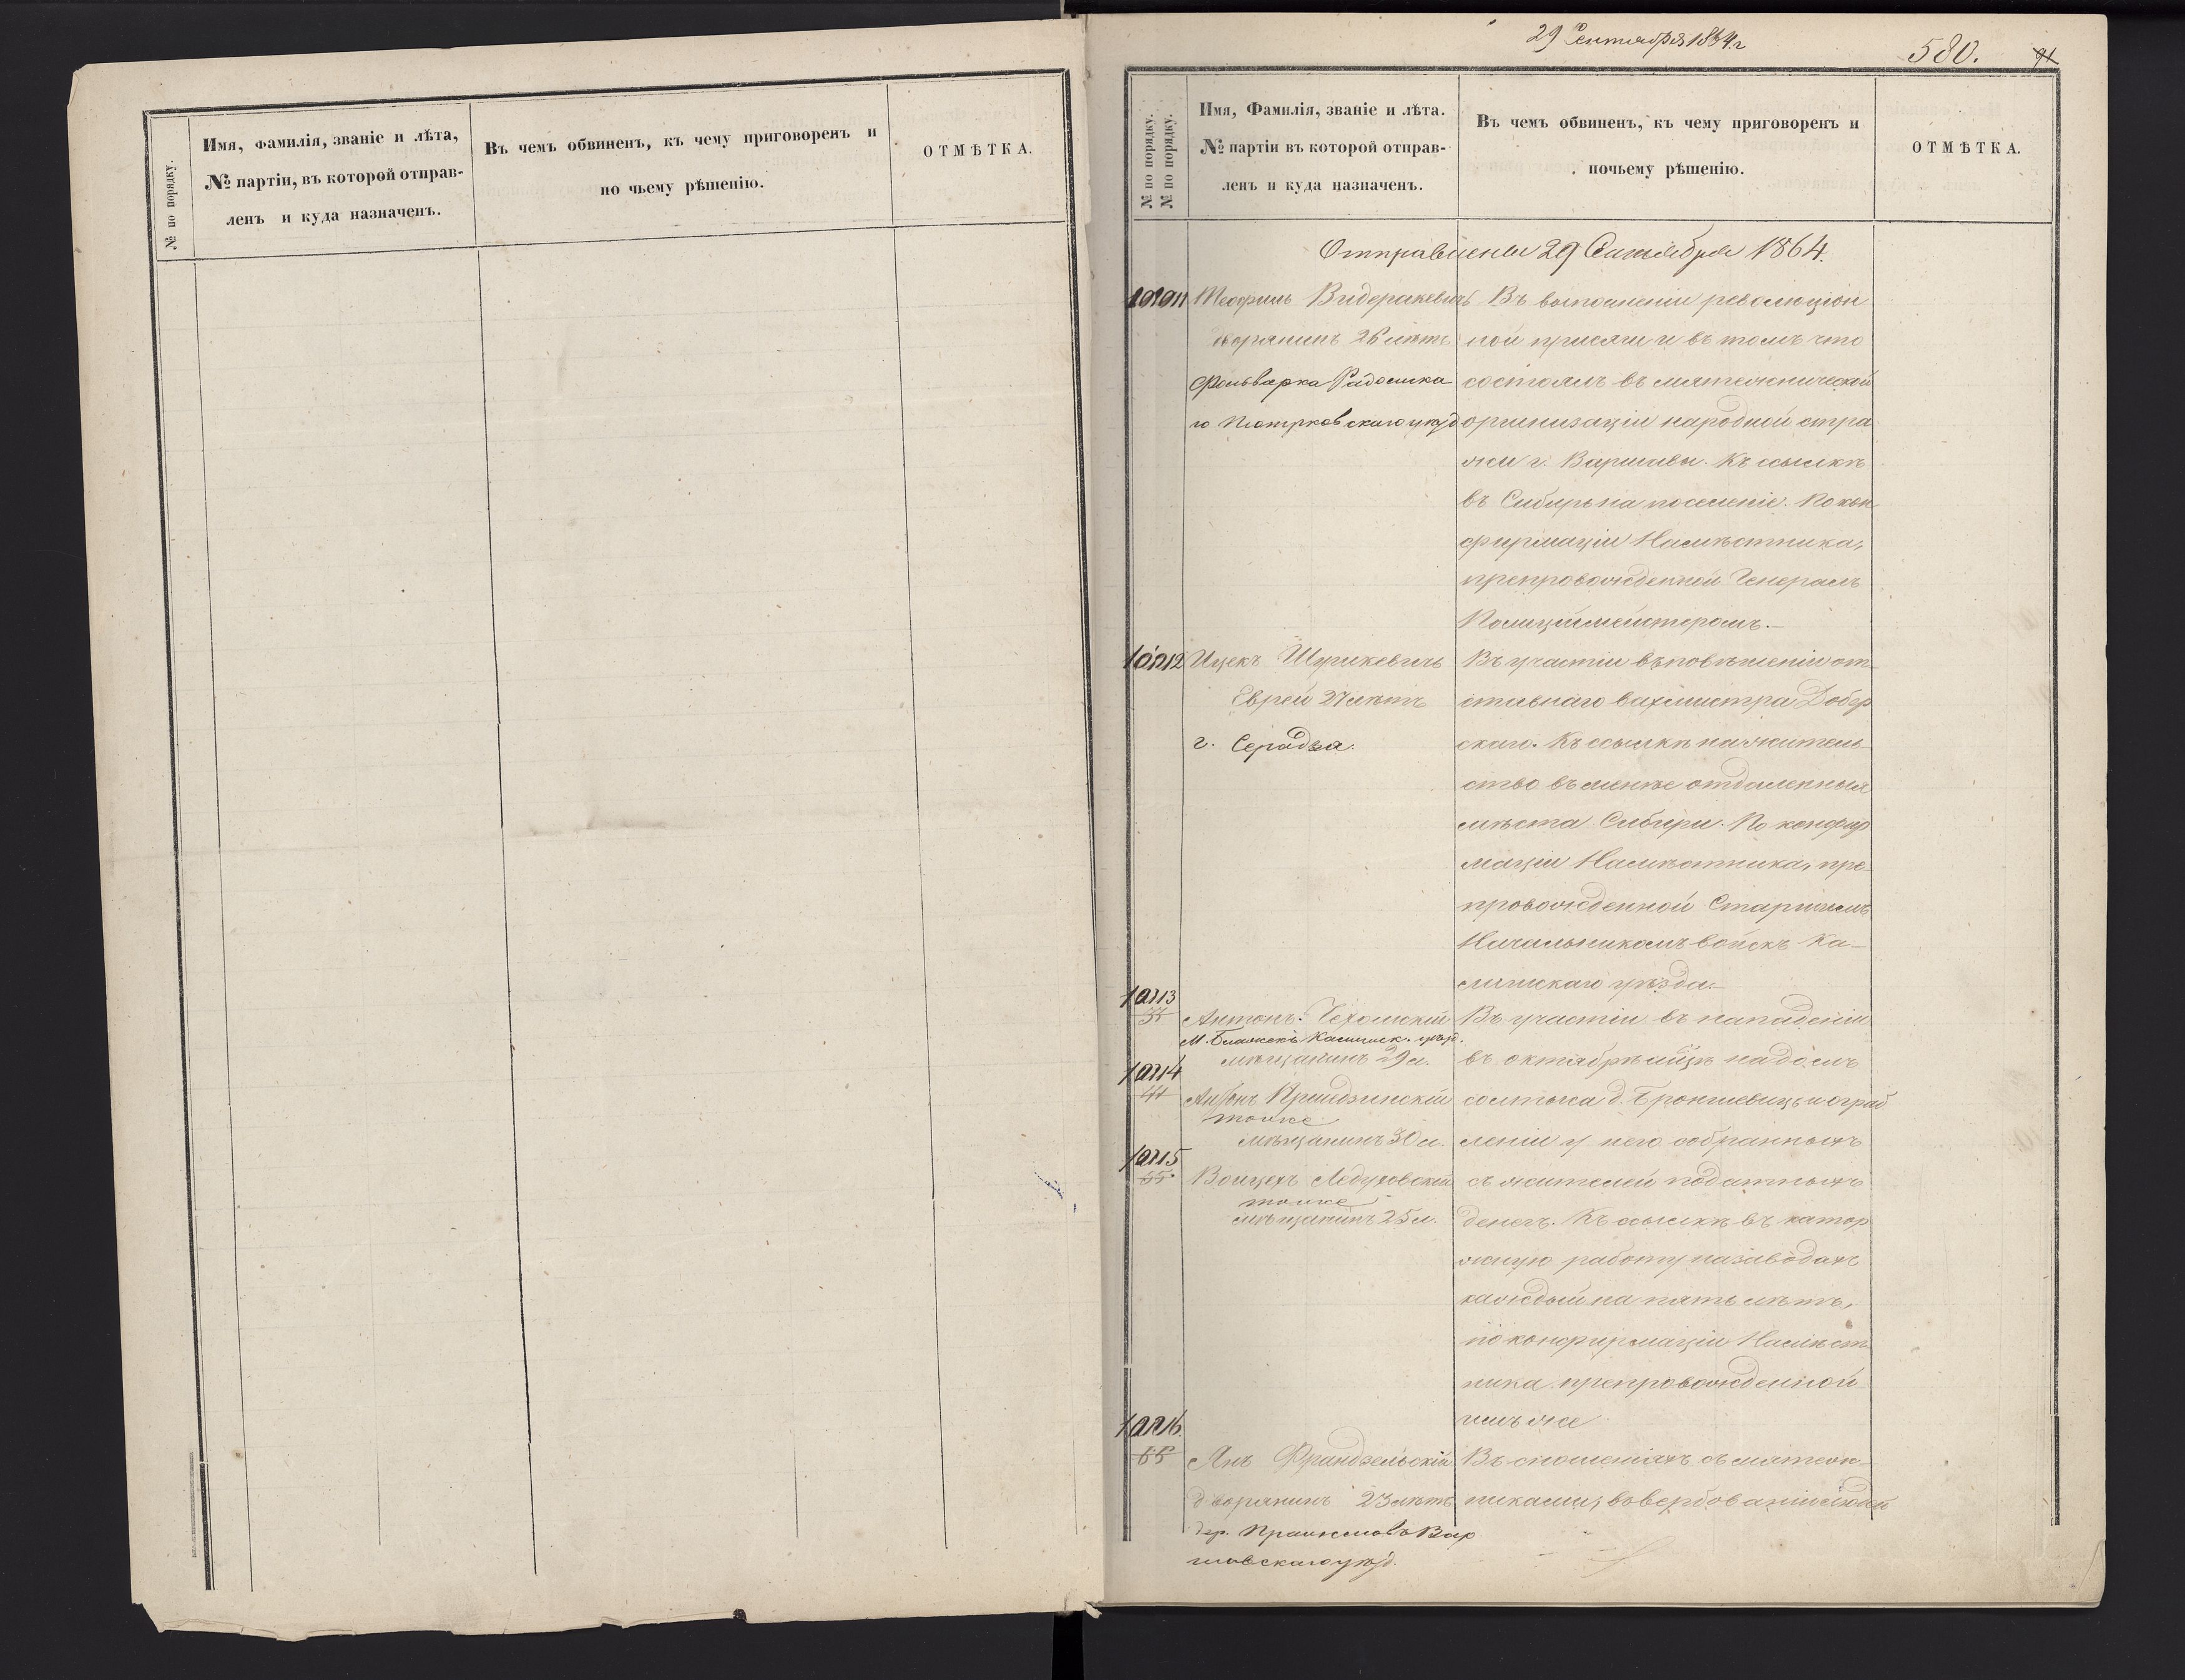 № по порядку.
Имя, фамилія, званіе и лѣта,
№ партіи, въ которой отправ-
ленъ и куда назначенъ.
Въ чемъ обвиненъ, къ чему приговоренъ и
по чьему рѣшенію.
ОТМѢТКА.
29 Сентября 1864 г
580.
91
№ по порядку.
№ по порядку.
Имя, Фамилія, званіе и лѣта.
№ партіи въ которой отправ-
ленъ и куда назначенъ.
Въ чемъ обвиненъ, къ чему приговоренъ и
почьему рѣшенію.
ОТМѢТКА.
Отправлены 29 Сентября 1864.
Теофиль Видеракевичъ
дворянинъ 26 лѣтъ
фольварка
Піотрковскаго уѣзд
Въ выполненіи революціон
ной присяги и въ томъ что
состоялъ въ мятежнической
организаціи народной стра
жи г. Варшавы. Къ ссылкѣ
въ Сибирь на поселеніе. По кон-
фирмаціи Намѣстника,
препровожденной Генералъ
Полиціймейстеромъ.—
Ицекъ Шурикевичъ
Еврей 27 лѣтъ
г. Серадза.
Въ участіи въ повѣшеніи от-
ставнаго вахмистра Добер
скаго. Къ ссылкѣ на житель-
ство въ менѣе отдаленныя
мѣста Сибири. По конфир
маціи Намѣстника, пре-
провожденной Старшимъ
Начальникомъ войскъ Ка-
лишскаго уѣзда.—
Антонъ Чехомскій
М. Блашекъ Калишск. уѣзд.
мѣщанинъ 29 л.
Антонъ
тоже
мѣщанинъ 30 л.
Войцехъ Ледуховскій
тоже
мѣщанинъ 25 л.
Въ участіи въ нападеніи
въ октябрѣ мцѣ на домъ
солтыса д. Бронишевицъ и ограб
леніи у него собранныхъ
съ жителей податныхъ
денегъ. Къ ссылкѣ въ катор
жную работу на заводахъ
каждый на пять лѣтъ,
по конфирмаціи Намѣст
ника препровожденной
имъ же
Янъ Францзельскій
дворянинъ 23 лѣтъ
дер. Вар
шавскаго уѣзд.
Въ сношеніяхъ съ мятеж-
никами, вовербованіи людей